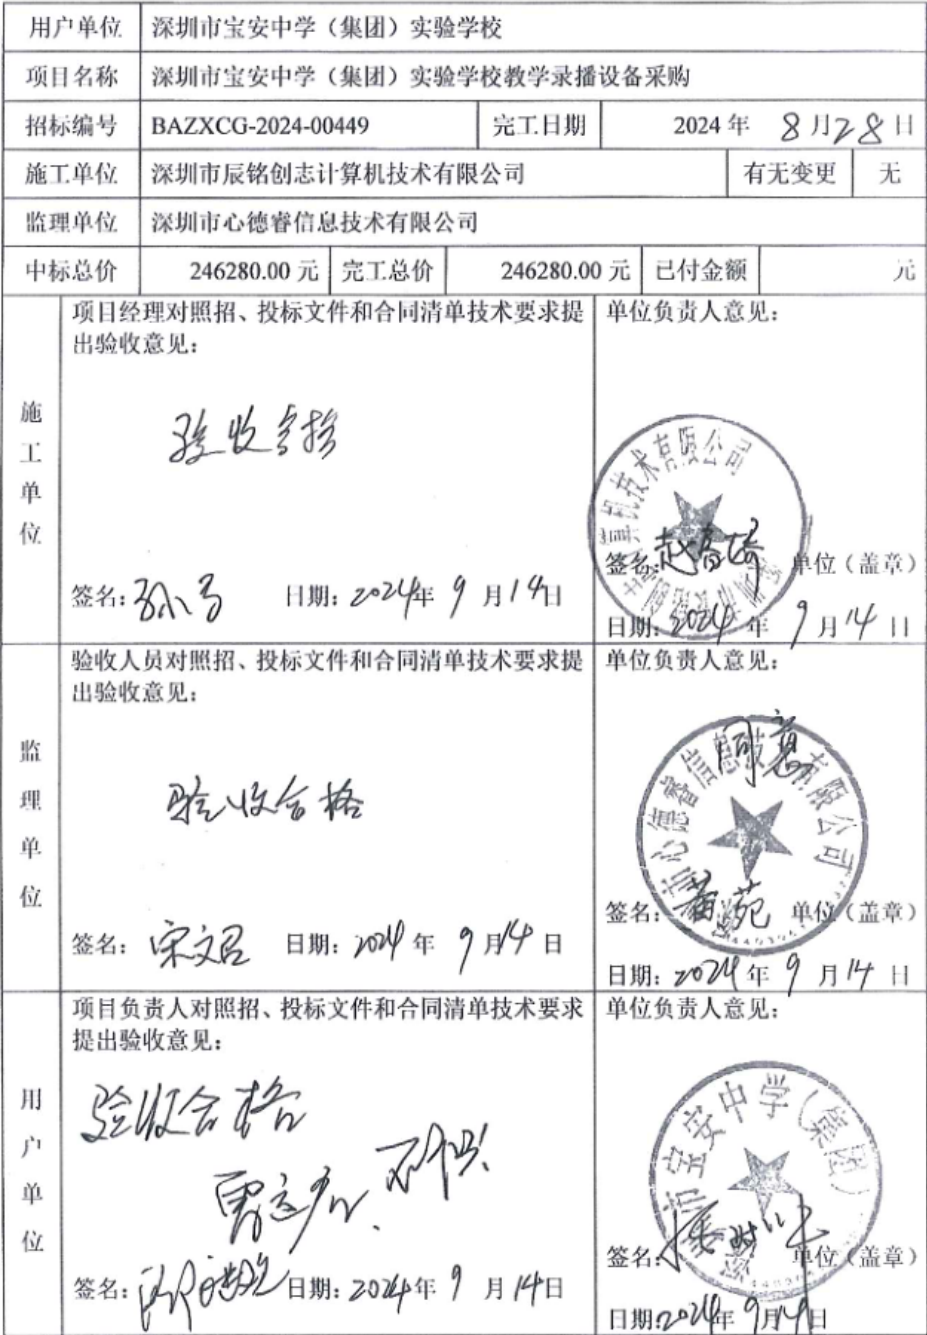 用户单位 深圳市宝安中学（集团）实验学校
项目名称 深圳市宝安中学（集团）实验学校教学录播设备采购
招标编号 BAZXCG-2024-00449 完工日期 2024 年 8 月 28 日
施工单位 深圳市辰铭创志计算机技术有限公司 有无变更 无
监理单位 深圳市心德睿信息技术有限公司
中标总价 246280.00 元 完工总价 246280.00 元 已付金额 元
施工单位
项目经理对照招、投标文件和合同清单技术要求提
出验收意见：
验收合格
签名： 日期：2024年 9 月14日
单位负责人意见：
算机技术有限公司
签名： 单位（盖章）
日期：2024 年 9 月 14 日
监理单位
验收人员对照招、投标文件和合同清单技术要求提
出验收意见：
验收合格
签名： 日期：2024 年 9 月14 日
单位负责人意见：
同意
市心德睿信息技术有限公司
签名： 单位（盖章）
日期：2024 年 9 月 14 日
用户单位
项目负责人对照招、投标文件和合同清单技术要求
提出验收意见：
验收合格
签名： 日期：2024年 9 月 14日
单位负责人意见：
市宝安中学(集团)
签名： 单位（盖章）
日期：2024年 9月14日